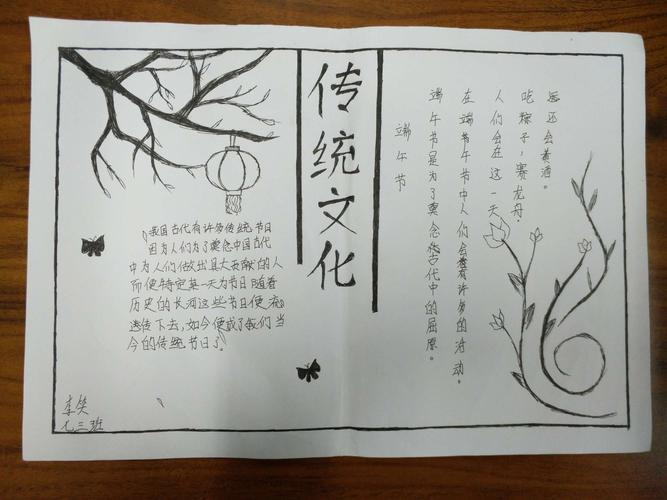 传统文化
我国古代有许多传统节日
因为人们为了奠念中国古代
中为人们做出具大贡献的人
而使特定某一天为节日随着
历史的长河这些节日便流
传下去,如今便成了我们当
今的传统节日了。
端午节
端午节是为了奠念古代中的屈原。
在端午节中人们会有许多的活动。
人们会在这一天
吃粽子,赛龙舟,
还会黄酒。
七三班